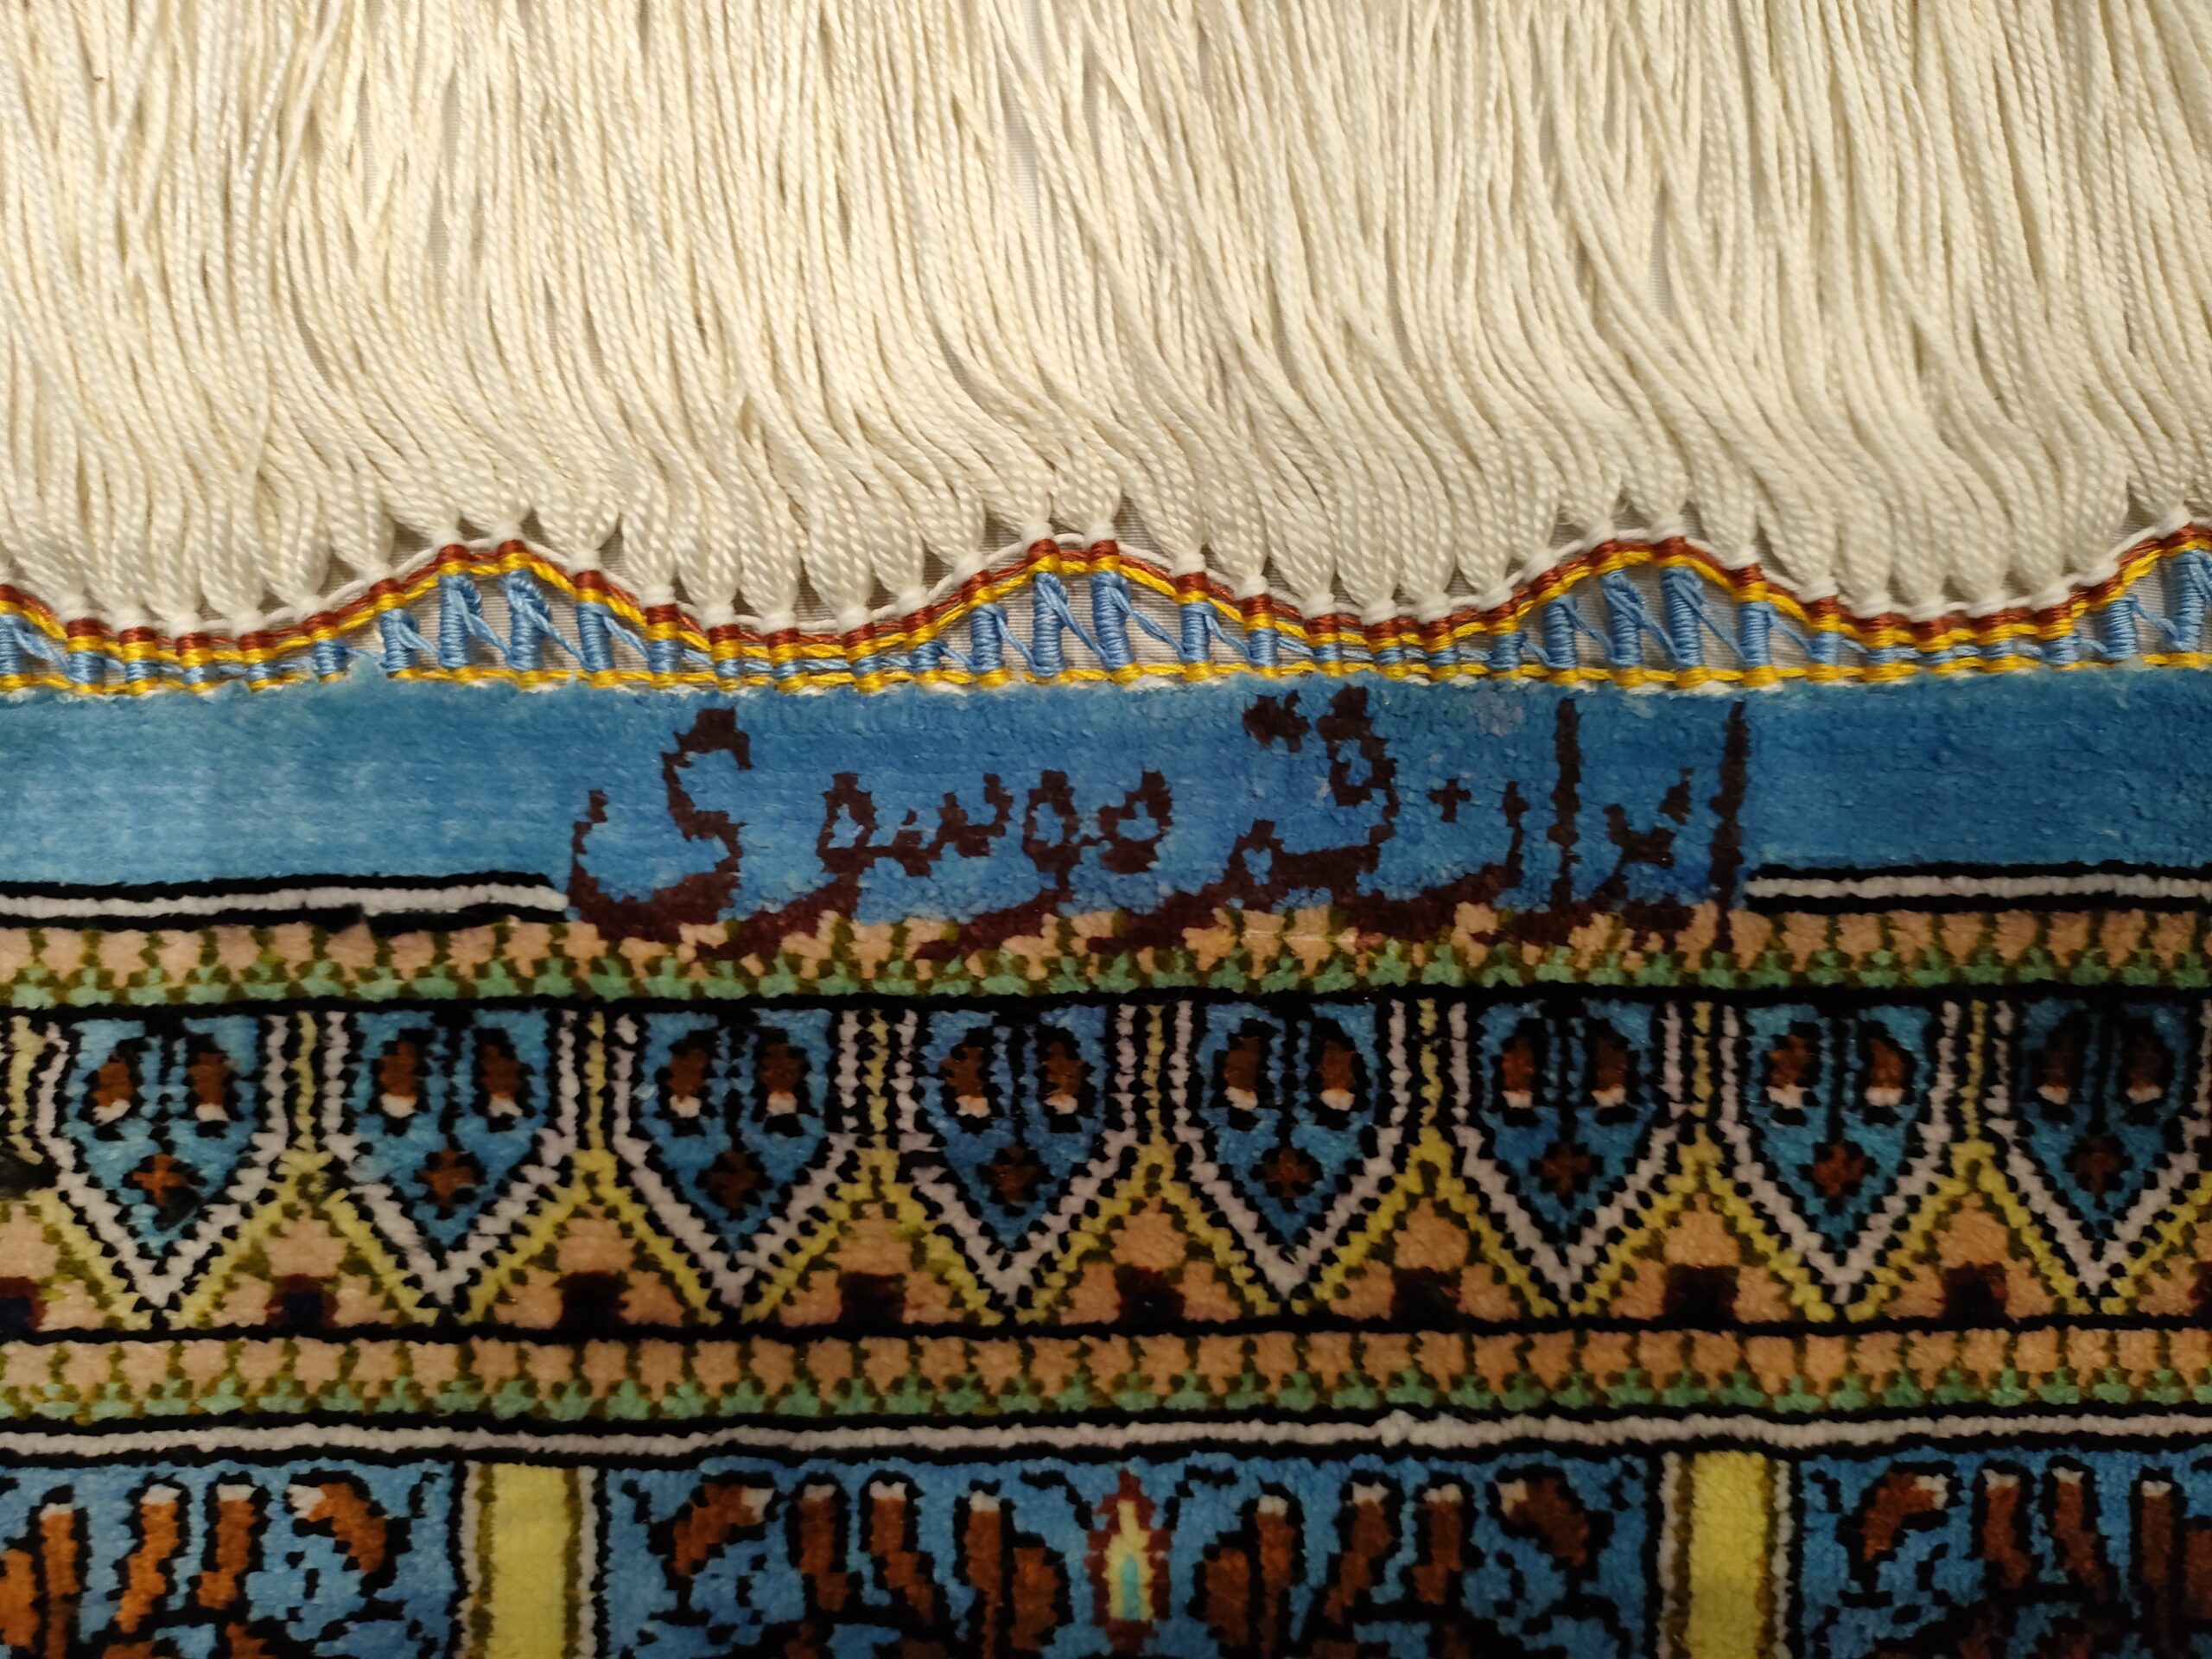 ایران قم موسوی